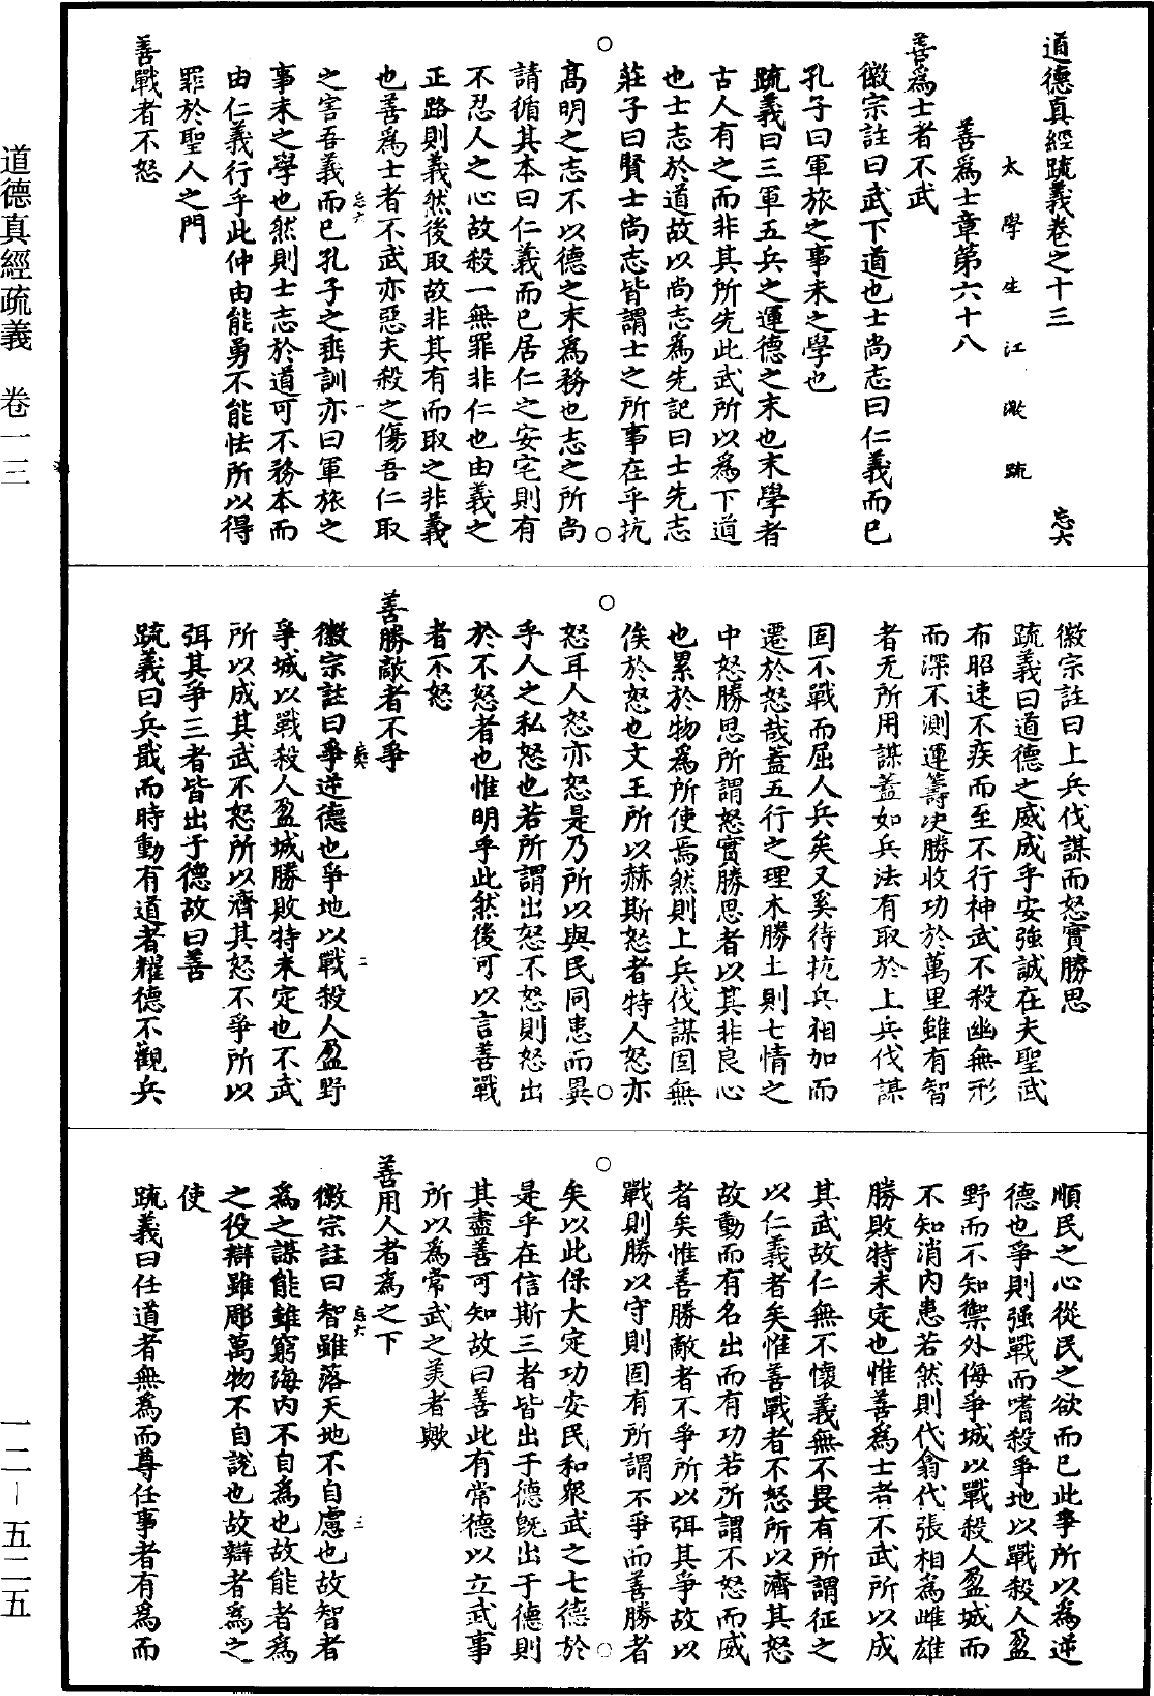 道德真經疏義卷之十三　忘六
太學生江澂疏
善爲士章第六十八
善爲士者不武
徽宗註曰武下道也士尚志曰仁義而已
孔子曰軍旅之事未之學也
疏義曰三軍五兵之運德之末也末學者
古人有之而非其所先此武所以爲下道
也士志於道故以尚志爲先記曰士先志
莊子曰賢士尚志皆謂士之所事在乎抗
高明之志不以德之末爲務也志之所尚
請循其本曰仁義而已居仁之安宅則有
不忍人之心故殺一無罪非仁也由義之
正路則義然後取故非其有而取之非義
也善爲士者不武亦惡夫殺之傷吾仁取
忘六　一
之害吾義而已孔子之垂訓亦曰軍旅之
事未之學也然則士志於道可不務本而
由仁義行乎此仲由能勇不能怯所以得
罪於聖人之門
善戰者不怒
徽宗註曰上兵伐謀而怒實勝思
疏義曰道德之威成乎安強誠在夫聖武
布昭速不疾而至不行神武不殺幽無形
而深不測運籌決勝收功於萬里雖有智
者无所用謀蓋如兵法有取於上兵伐謀
固不戰而屈人兵矣又奚待抗兵相加而
遷於怒哉蓋五行之理木勝土則七情之
中怒勝思所謂怒實勝思者以其非良心
也累於物爲所使焉然則上兵伐謀固無
俟於怒也文王所以赫斯怒者特人怒亦
怒耳人怒亦怒是乃所以與民同患而異
乎人之私怒也若所謂出怒不怒則怒出
於不怒者也惟明乎此然後可以言善戰
者不怒
善勝敵者不爭
忘六　二
徽宗註曰爭逆德也爭地以戰殺人盈野
爭城以戰殺人盈城勝敗特未定也不武
所以成其武不怒所以濟其怒不爭所以
弭其爭三者皆出于德故曰善
疏義曰兵戢而時動有道者耀德不觀兵
順民之心從民之欲而已此爭所以爲逆
德也爭則强戰而嗜殺爭地以戰殺人盈
野而不知禦外侮爭城以戰殺人盈城而
不知消內患若然則代翕代張相爲雌雄
勝敗特未定也惟善爲士者不武所以成
其武故仁無不懷義無不畏有所謂征之
以仁義者矣惟善戰者不怒所以濟其怒
故動而有名出而有功若所謂不怒而威
者矣惟善勝敵者不爭所以弭其爭故以
戰則勝以守則固有所謂不爭而善勝者
矣以此保大定功安民和衆武之七德於
是乎在信斯三者皆出于德旣出于德則
其盡善可知故曰善此有常德以立武事
所以爲常武之美者歟
善用人者爲之下
忘六　三
徽宗註曰智雖落天地不自慮也故智者
爲之謀能雖窮海內不自爲也故能者爲
之役辯雖彫萬物不自說也故辯者爲之
使
疏義曰任道者無爲而尊任事者有爲而
道德真經疏義　卷一三
一二－五二五